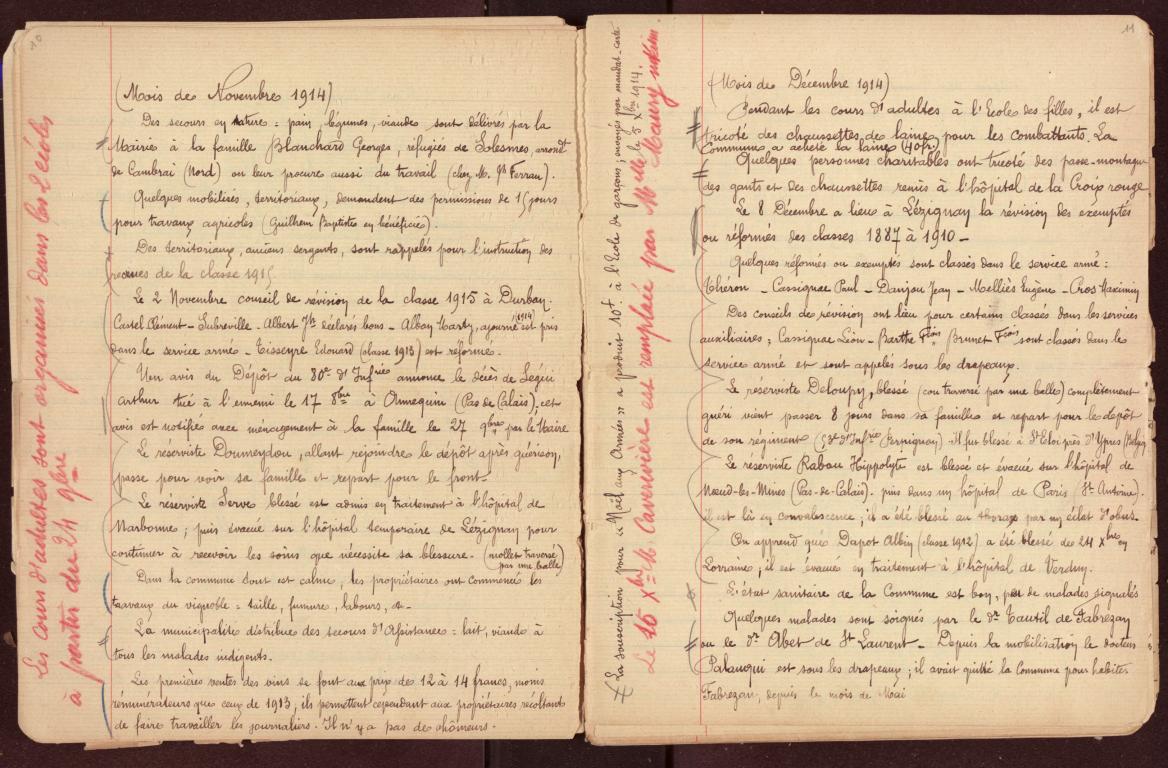 10
Les cours d'adultes sont organisés dans les Ecoles
à partir du 24 9bre
(Mois de Novembre 1914)
Des secours en nature : pain, légumes, viande sont délivrés par la
Mairie à la famille Blanchard Georges, réfugiés de Solesmes, arrondt
de Cambrai (Nord) on leur procure aussi du travail (chez M. Gh Ferrau).
Quelques mobilisés, territoriaux, demandent des permissions de 15 jours
pour travaux agricoles (Guilhem Baptiste en bénéficie).
Des territoriaux, anciens sergents, sont rappelés pour l'instruction des
recrues de la classe 1915.
Le 2 Novembre conseil de révision de la classe 1915 à Durban.
Castel Clément - Subreville - Albert Jh déclarés bons - Alboy Marty, ajourné (1914) est pris
dans le service armé - Tisseyre Edouard (classe 1913) est réformé.
Un avis du Dépôt du 80e d'Infrie annonce le décès de
Arthur tué à l'ennemi le 17 8bre à Annequin (Pas de Calais), cet
avis est notifié avec ménagement à la famille le 27 9bre par le Maire
Le réserviste Doumeydou, allant rejoindre le dépôt après guérison,
passe pour voir sa famille et repart pour le front.
Le réserviste Serve blessé est admis en traitement à l'hôpital de
Narbonne ; puis évacué sur l'hôpital temporaire de Lézignan pour
continuer à recevoir les soins que nécessite sa blessure. (mollet traversé
par une balle)
Dans la commune tout est calme, les propriétaires ont commencé les
travaux du vignoble : taille, fumure, labours, &-
La municipalité distribue des secours d'Assistance : lait, viande à
tous les malades indigents.
Les premières ventes des vins se font aux prix de 12 à 14 francs, moins
rémunérateurs que ceux de 1913 ; ils permettent cependant aux propriétaires récoltants
de faire travailler les journaliers. Il n'y a pas de chômeurs.
11
La souscription pour "Noël aux Armées" a produit 10f. à l'Ecole de garçons ; envoyés par mandat-carte
le 5 Xbre 1914.
Le 15 Xbre M. Caverivière est remplacé par Melle Maury
(Mois de Décembre 1914)
Pendant les cours d'adultes à l'Ecole des filles, il est
tricoté des chaussettes de laine pour les combattants. La
Commune a acheté la laine (40fr.)
Quelques personnes charitables ont tricoté des passe-montagne
des gants et des chaussettes remis à l'hôpital de la Croix rouge
Le 8 Décembre a lieu à Lézignan la révision des exemptés
ou réformés des classes 1887 à 1910 -
Quelques réformés ou exemptés sont classés dans le service armé :
Théron - Cassignac Paul - Danjou Jean - Melliès Eugène - Cros Maximin
Des conseils de révision ont lieu pour certains classés dans les services
auxiliaires ; Cassignac Léon - Barthe Fçois Brunet Fçois sont classés dans le
service armé et sont appelés sous les drapeaux.
Le réserviste Deloupy, blessé (cou traversé par une balle) complètement
guéri vient passer 8 jours dans sa famille et repart pour le dépôt
de son régiment (53e d'Infrie Perpignan) - Il fut blessé à St Eloi près d'Ypres (Belgique)
Le réserviste Rabou Hippolyte est blessé et évacué sur l'hôpital de
Nœud-les-Mines (Pas-de-Calais). puis dans un hôpital de Paris (St Antoine).
il est là en convalescence ; il a été blessé au thorax par un éclat d'obus.
On apprend que Dapot Albin (classe 1912) a été blessé le 24 Xbre en
Lorraine ; il est évacué en traitement à l'hôpital de Verdun.
L'état sanitaire de la Commune est bon, pas de malades signalés
Quelques malades sont soignés par le dr Tautil de Fabrezan
ou le dr Abet de St Laurent - Depuis la mobilisation le docteur
Palauqui est sous les drapeaux ; il avait quitté la commune pour habiter
Fabrezan, depuis le mois de Mai